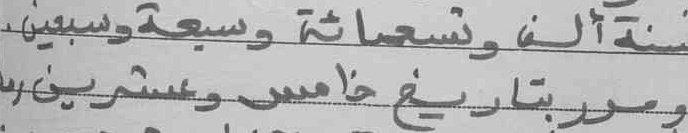 سنة ألف وتسعمائة وسبعة وسبعين.
وحرر بتاريخ خامس وعشرين